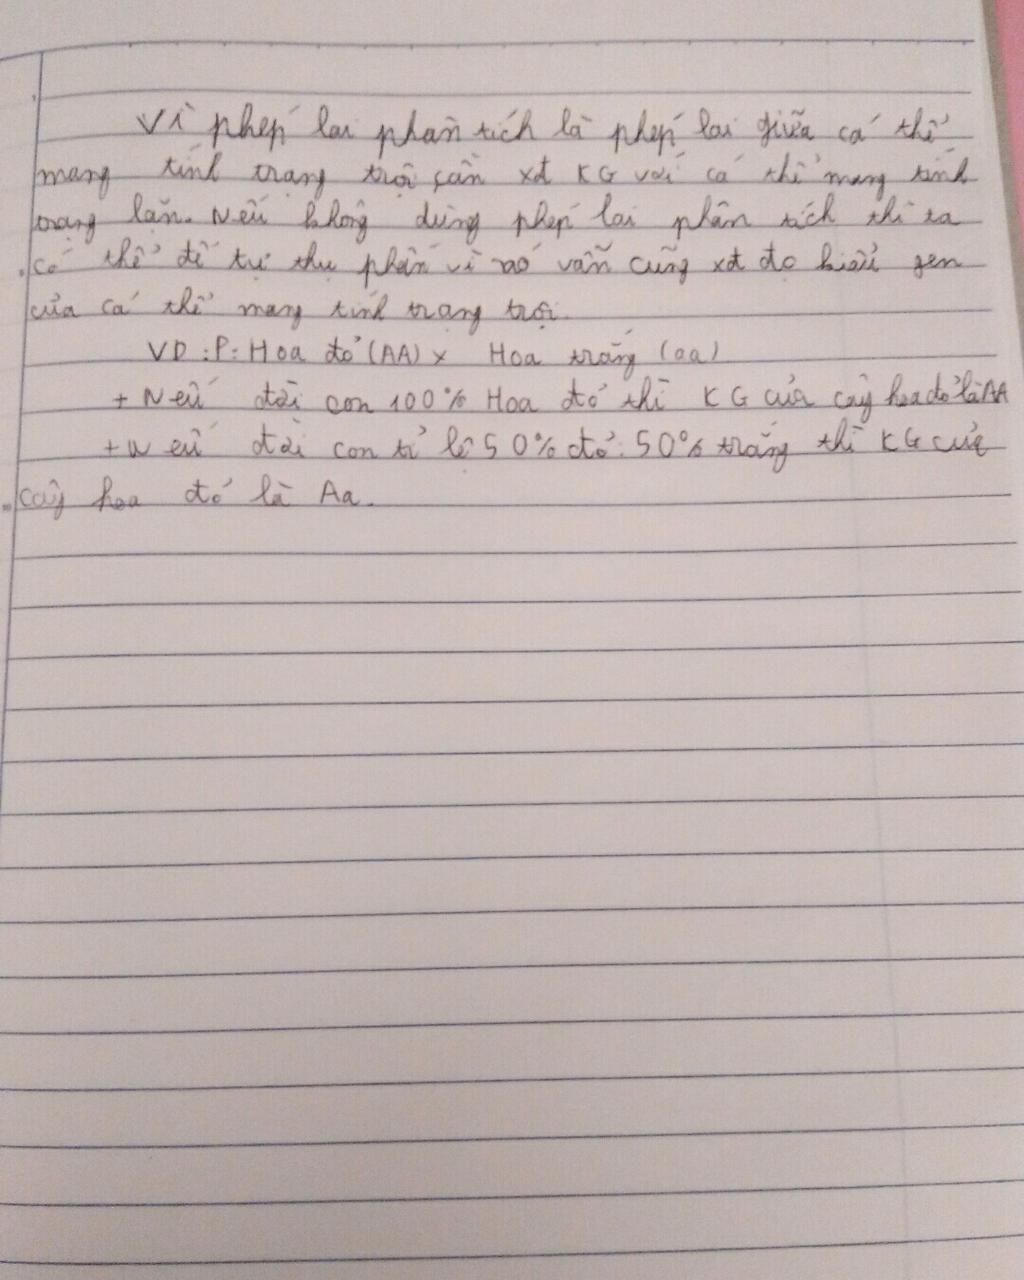 Vì phép lai phân tích là phép lai giữa cá thể
mang tính trạng trội cần xđ KG với cá thể mang tính
trạng lặn. Nếu không dùng phép lai phân tích thì ta
có thể để tự thụ phấn vì nó vẫn cũng xđ đc kiểu gen
của cá thể mang tính trạng trội.
VD : P : Hoa đỏ (AA) x Hoa trắng (aa)
+ Nếu đời con 100% Hoa đỏ thì KG của cây hoa đỏ là AA
+ Nếu đời con tỉ lệ 50% đỏ : 50% trắng thì KG của
cây hoa đỏ là Aa.